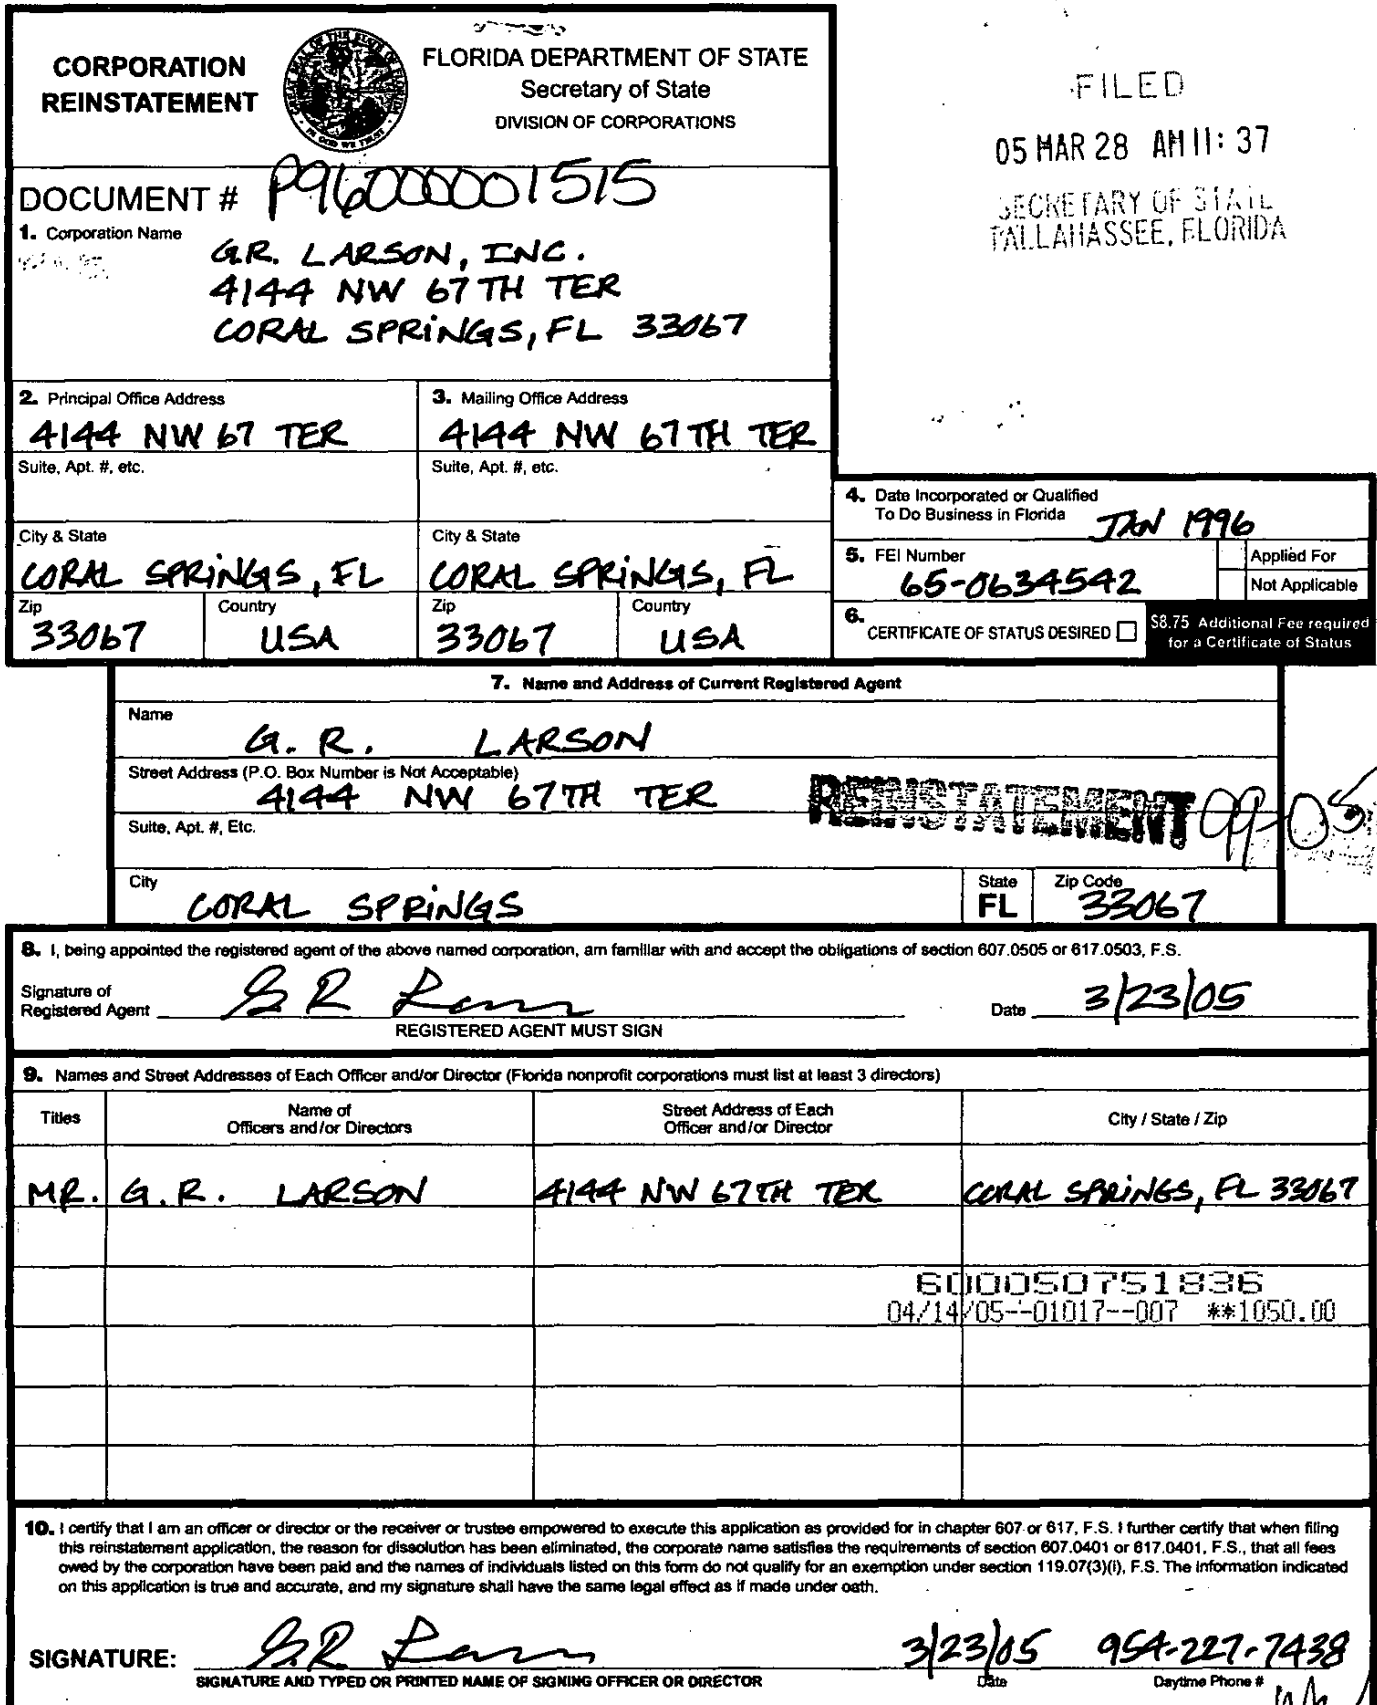 CORPORATION
REINSTATEMENT
GREAT SEAL OF THE STATE OF FLORIDA
IN GOD WE TRUST
FLORIDA DEPARTMENT OF STATE
Secretary of State
DIVISION OF CORPORATIONS
FILED
05 MAR 28 AM 11: 37
SECRETARY OF STATE
TALLAHASSEE, FLORIDA
DOCUMENT # P96000001515
1. Corporation Name
G.R. LARSON, INC.
4144 NW 67TH TER
CORAL SPRiNGS, FL 33067
2. Principal Office Address
4144 NW 67 TER
3. Mailing Office Address
4144 NW 67TH TER
Suite, Apt. #, etc.
Suite, Apt. #, etc.
City & State
CORAL SPRiNGS, FL
City & State
CORAL SPRiNGS, FL
Zip
33067
Country
USA
Zip
33067
Country
USA
4. Date Incorporated or Qualified
To Do Business in Florida JAN 1996
5. FEI Number
65-0634542
Applied For
Not Applicable
6. CERTIFICATE OF STATUS DESIRED
$8.75 Additional Fee required
for a Certificate of Status
7. Name and Address of Current Registered Agent
Name
G. R. LARSON
Street Address (P.O. Box Number is Not Acceptable)
4144 NW 67TH TER
REINSTATEMENT 99-05
Suite, Apt. #, Etc.
City
CORAL SPRiNGS
State
FL
Zip Code
33067
8. I, being appointed the registered agent of the above named corporation, am familiar with and accept the obligations of section 607.0505 or 617.0503, F.S.
Signature of
Registered Agent G R Larson
Date 3/23/05
REGISTERED AGENT MUST SIGN
9. Names and Street Addresses of Each Officer and/or Director (Florida nonprofit corporations must list at least 3 directors)
Titles
Name of
Officers and/or Directors
Street Address of Each
Officer and/or Director
City / State / Zip
MR. G. R. LARSON 4144 NW 67TH TER CORAL SPRiNGS, FL 33067
600050751836
04/14/05--01017--007 **1050.00
10. I certify that I am an officer or director or the receiver or trustee empowered to execute this application as provided for in chapter 607 or 617, F.S. I further certify that when filing
this reinstatement application, the reason for dissolution has been eliminated, the corporate name satisfies the requirements of section 607.0401 or 617.0401, F.S., that all fees
owed by the corporation have been paid and the names of individuals listed on this form do not qualify for an exemption under section 119.07(3)(i), F.S. The information indicated
on this application is true and accurate, and my signature shall have the same legal effect as if made under oath.
SIGNATURE: G.R Larson 3/23/05 954-227-7438
SIGNATURE AND TYPED OR PRINTED NAME OF SIGNING OFFICER OR DIRECTOR
Date
Daytime Phone #